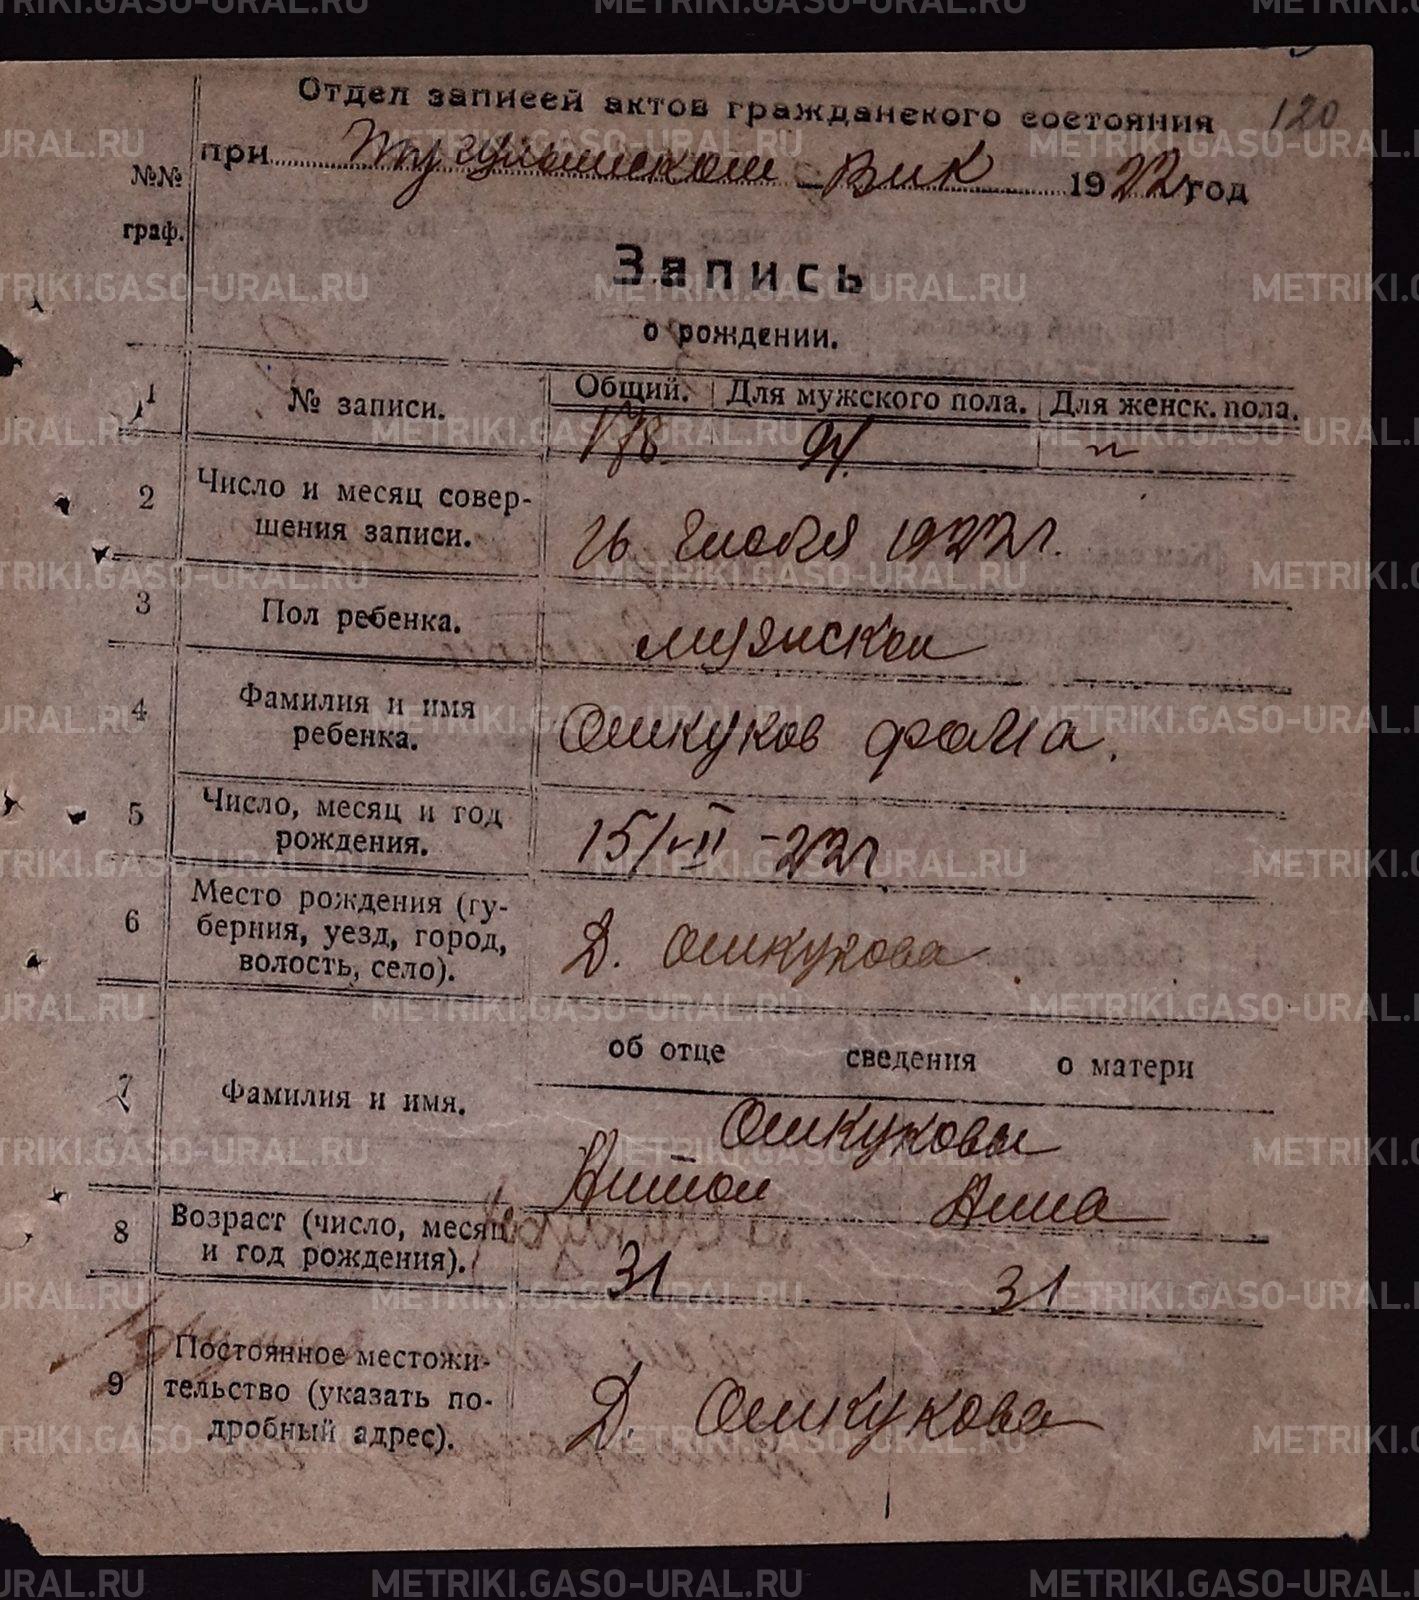 120
Отдел записей актов гражданского состояния
при Тугулымском ВИК 1922 год
№№ граф.
Запись
о рождении.
1 № записи. Общий. Для мужского пола. Для женск. пола.
178 94. "
2 Число и месяц совер-
шения записи.
26 1922 г.
3 Пол ребенка. мужской
4 Фамилия и имя
ребенка.
Ошкуков Фома.
5 Число, месяц и год
рождения.
15/VII -22 г.
6 Место рождения (гу-
берния, уезд, город,
волость, село).
Д. Ошкукова
об отце сведения о матери
7 Фамилия и имя.
Ошкуковы
Антон Анна
8 Возраст (число, месяц
и год рождения).
31 31
9 Постоянное местожи-
тельство (указать по-
дробный адрес).
Д. Ошкукова
METRIKI.GASO-URAL.RU